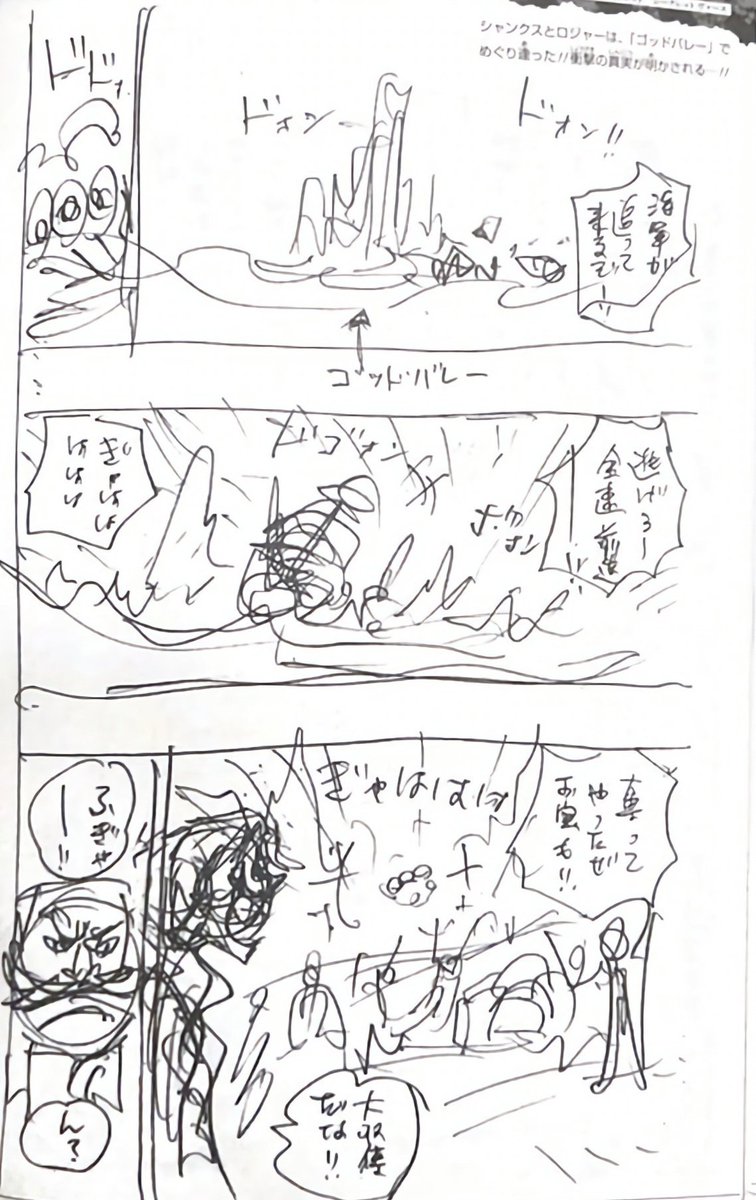 シャンクスとロジャーは、「ゴッドバレー」で
めぐり逢った!!衝撃の真実が明かされる…!!
ドォン!!
海軍が
追って
来るぞー!!
ドォン
ドドォ
ゴッド・バレー
逃げろー
全速前進
ドゴォン
ぎゃはは
ははは
ははは
奪って
やったぜ
お宝も!!
ぎゃははは
大収穫
だな!!
ふぎゃ
ー!!
ん?